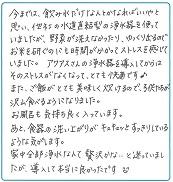 今までは、飲み水だけなんとかなればいいやと
思い、他社の水道直結型の浄水器を使って
いましたが、野菜が洗えなかったり、やっぱり出るので
お米を研ぐのにも時間がかかってストレスを感じて
いました。アクアスさんの浄水器を導入してからは
そのストレスがなくなって、とても快適です♪
また、ご飯がとても美味しく炊けるので、子供たちが
沢山食べるようになりました。
お風呂も気持ち良く入っています。
あと、食器の洗い上がりがキュキュッとすっきりしている
ような気がします。
家中全部浄水なんて贅沢かな…と迷っていまし
たが、導入して本当に良かったです